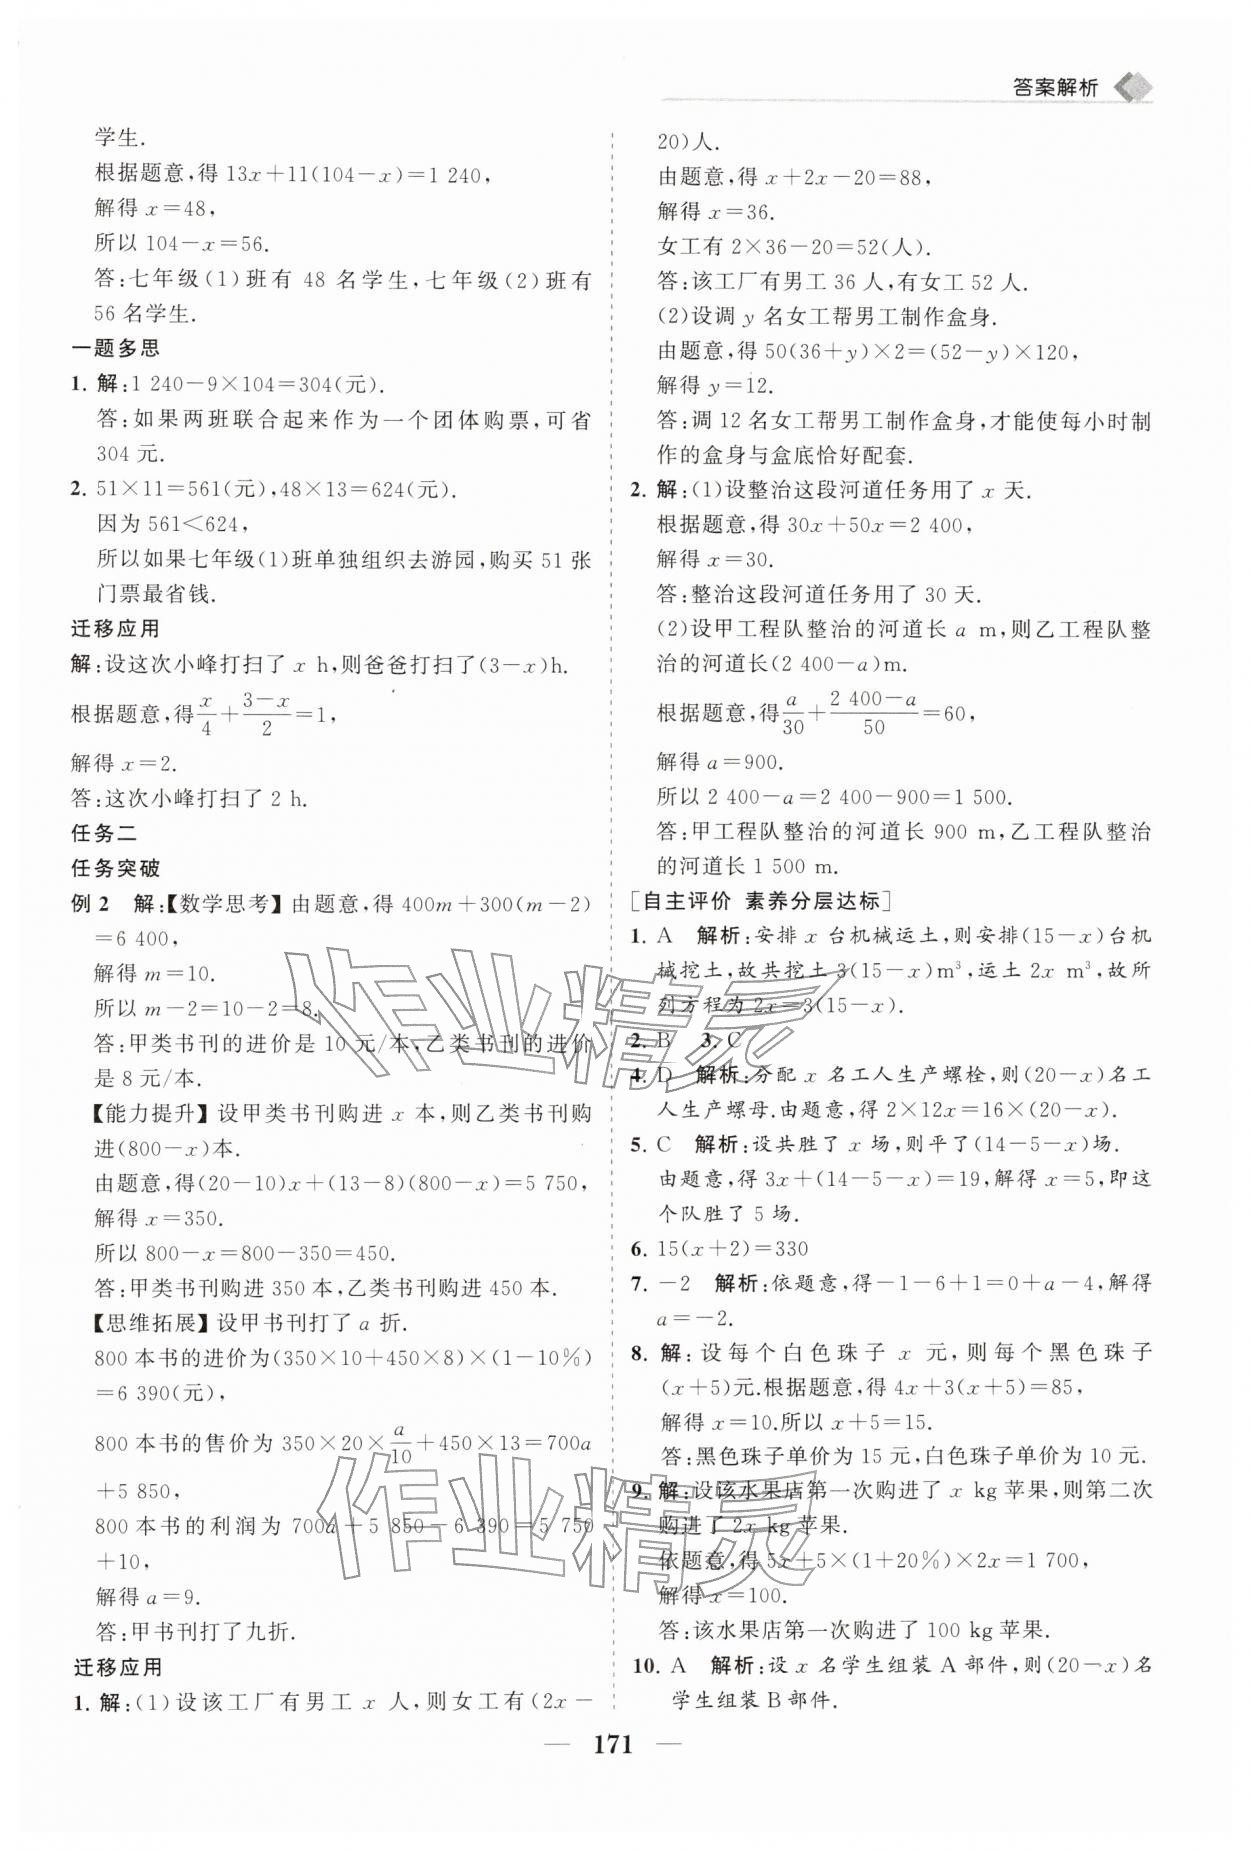 答案解析
学生.
根据题意,得 13x+11(104-x)=1 240,
解得 x=48,
所以 104-x=56.
答:七年级(1)班有 48 名学生,七年级(2)班有
56 名学生.
一题多思
1. 解:1 240-9×104=304(元).
答:如果两班联合起来作为一个团体购票,可省
304 元.
2. 51×11=561(元),48×13=624(元).
因为 561<624,
所以如果七年级(1)班单独组织去游园,购买 51 张
门票最省钱.
迁移应用
解:设这次小峰打扫了 x h,则爸爸打扫了(3-x)h.
根据题意,得x/4+(3-x)/2=1,
解得 x=2.
答:这次小峰打扫了 2 h.
任务二
任务突破
例2 解:【数学思考】由题意,得 400m+300(m-2)
=6 400,
解得 m=10.
所以 m-2=10-2=8.
答:甲类书刊的进价是 10 元/本,乙类书刊的进价
是 8 元/本.
【能力提升】设甲类书刊购进 x 本,则乙类书刊购
进(800-x)本.
由题意,得(20-10)x+(13-8)(800-x)=5 750,
解得 x=350.
所以 800-x=800-350=450.
答:甲类书刊购进 350 本,乙类书刊购进 450 本.
【思维拓展】设甲书刊打了 a 折.
800 本书的进价为(350×10+450×8)×(1-10%)
=6 390(元),
800 本书的售价为 350×20×a/10+450×13=700a
+5 850,
800 本书的利润为 700a+5 850-6 390=5 750
+10,
解得 a=9.
答:甲书刊打了九折.
迁移应用
1. 解:(1)设该工厂有男工 x 人,则女工有(2x-
20)人.
由题意,得 x+2x-20=88,
解得 x=36.
女工有 2×36-20=52(人).
答:该工厂有男工 36 人,有女工 52 人.
(2)设调 y 名女工帮男工制作盒身.
由题意,得 50(36+y)×2=(52-y)×120,
解得 y=12.
答:调 12 名女工帮男工制作盒身,才能使每小时制
作的盒身与盒底恰好配套.
2. 解:(1)设整治这段河道任务用了 x 天.
根据题意,得 30x+50x=2 400,
解得 x=30.
答:整治这段河道任务用了 30 天.
(2)设甲工程队整治的河道长 a m,则乙工程队整
治的河道长(2 400-a)m.
根据题意,得a/30+(2 400-a)/50=60,
解得 a=900.
所以 2 400-a=2 400-900=1 500.
答:甲工程队整治的河道长 900 m,乙工程队整治
的河道长 1 500 m.
[自主评价 素养分层达标]
1. A 解析:安排 x 台机械运土,则安排(15-x)台机
械挖土,故共挖土 3(15-x)m³,运土 2x m³,故所
列方程为 2x=3(15-x).
2. B 3. C
4. D 解析:分配 x 名工人生产螺栓,则(20-x)名工
人生产螺母.由题意,得 2×12x=16×(20-x).
5. C 解析:设共胜了 x 场,则平了(14-5-x)场.
由题意,得 3x+(14-5-x)=19,解得 x=5,即这
个队胜了 5 场.
6. 15(x+2)=330
7. -2 解析:依题意,得-1-6+1=0+a-4,解得
a=-2.
8. 解:设每个白色珠子 x 元,则每个黑色珠子
(x+5)元.根据题意,得 4x+3(x+5)=85,
解得 x=10.所以 x+5=15.
答:黑色珠子单价为 15 元,白色珠子单价为 10 元.
9. 解:设该水果店第一次购进了 x kg 苹果,则第二次
购进了 2x kg 苹果.
依题意,得 5x+5×(1+20%)×2x=1 700,
解得 x=100.
答:该水果店第一次购进了 100 kg 苹果.
10. A 解析:设 x 名学生组装 A 部件,则(20-x)名
学生组装 B 部件.
— 171 —
作业精灵
作业精灵